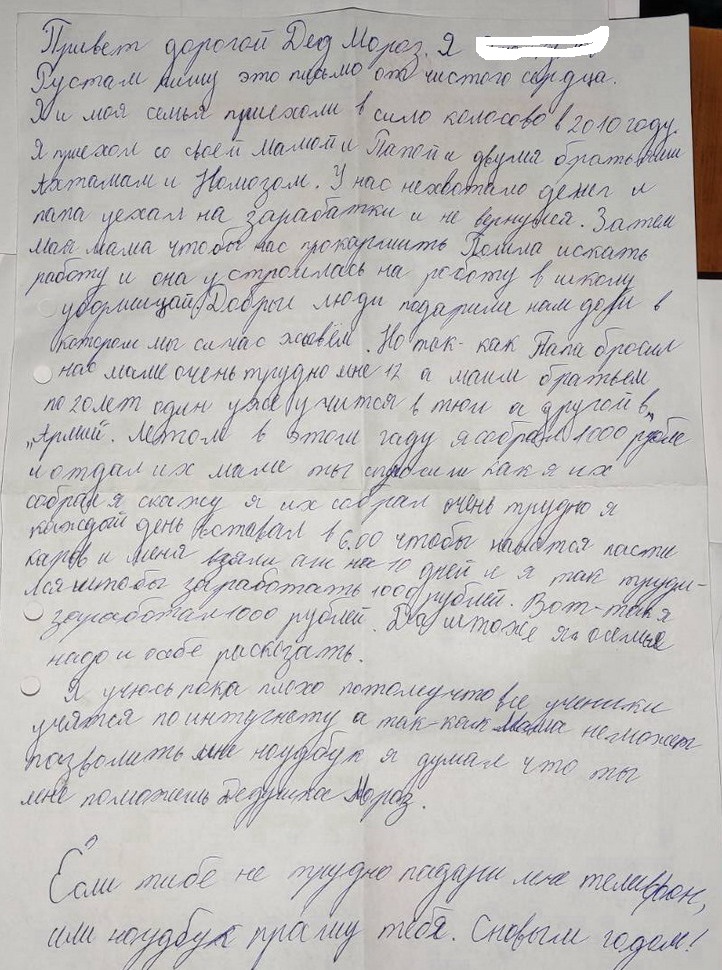 Привет дорогой Дед Мороз. Я
Рустам пишу это письмо от чистого сердца.
Я и моя семья приехоли в сило колосово в 2010 году.
Я приехол со своей Мамой и Папой и двумя братьями
Ахтамам и Номозом. У нас нехвотало денег и
папа уехал на зарабатки и не вернулся. Затем
май мама чтобы нас прокармить Пошла искать
работу и она устроилась на роботу в школу
уборщицай. Добрыи люди подарили нам дом в
котором мы сичас живём. Но так-как Папа бросил
нас маме очень трудно мне 12 а маим братьем
по 20 лет один уже учится в а другой в
"Армий. Летом в этом гаду я собрал 1000 рубле
и отдал их маме ты спросиш как я их
собрал я скажу я их собрал очень трудно я
каждый день вставал в 6.00 чтобы пасти
каров и меня взяли аш на 10 дней и я так труди-
лся штобы заработать 1000 рублей. Вот-так я
заработал 1000 рублей. Да штоже я
надо и о себе расказать.
Я учюсь пока плохо потомучто все ученики
учятся по интернету а так-как Мама неможет
пазволить мне ноудбук я думал что ты
мне поможешь Дедушка Мороз.
Если тибе не трудно падари мне телифон,
или ноудбук прашу тебя. Сновым годом!